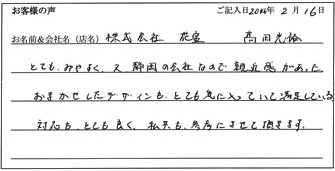 お客様の声 ご記入日2014年2月16日
お名前&会社名(店名) 株式会社 花宝 高田光裕
とても、みやすく、又静岡の会社なので親近感があった。
おまかせしたデザインも、とても気に入っていて満足している
対応も、とても良く、私共も、参考にさせて頂きます。